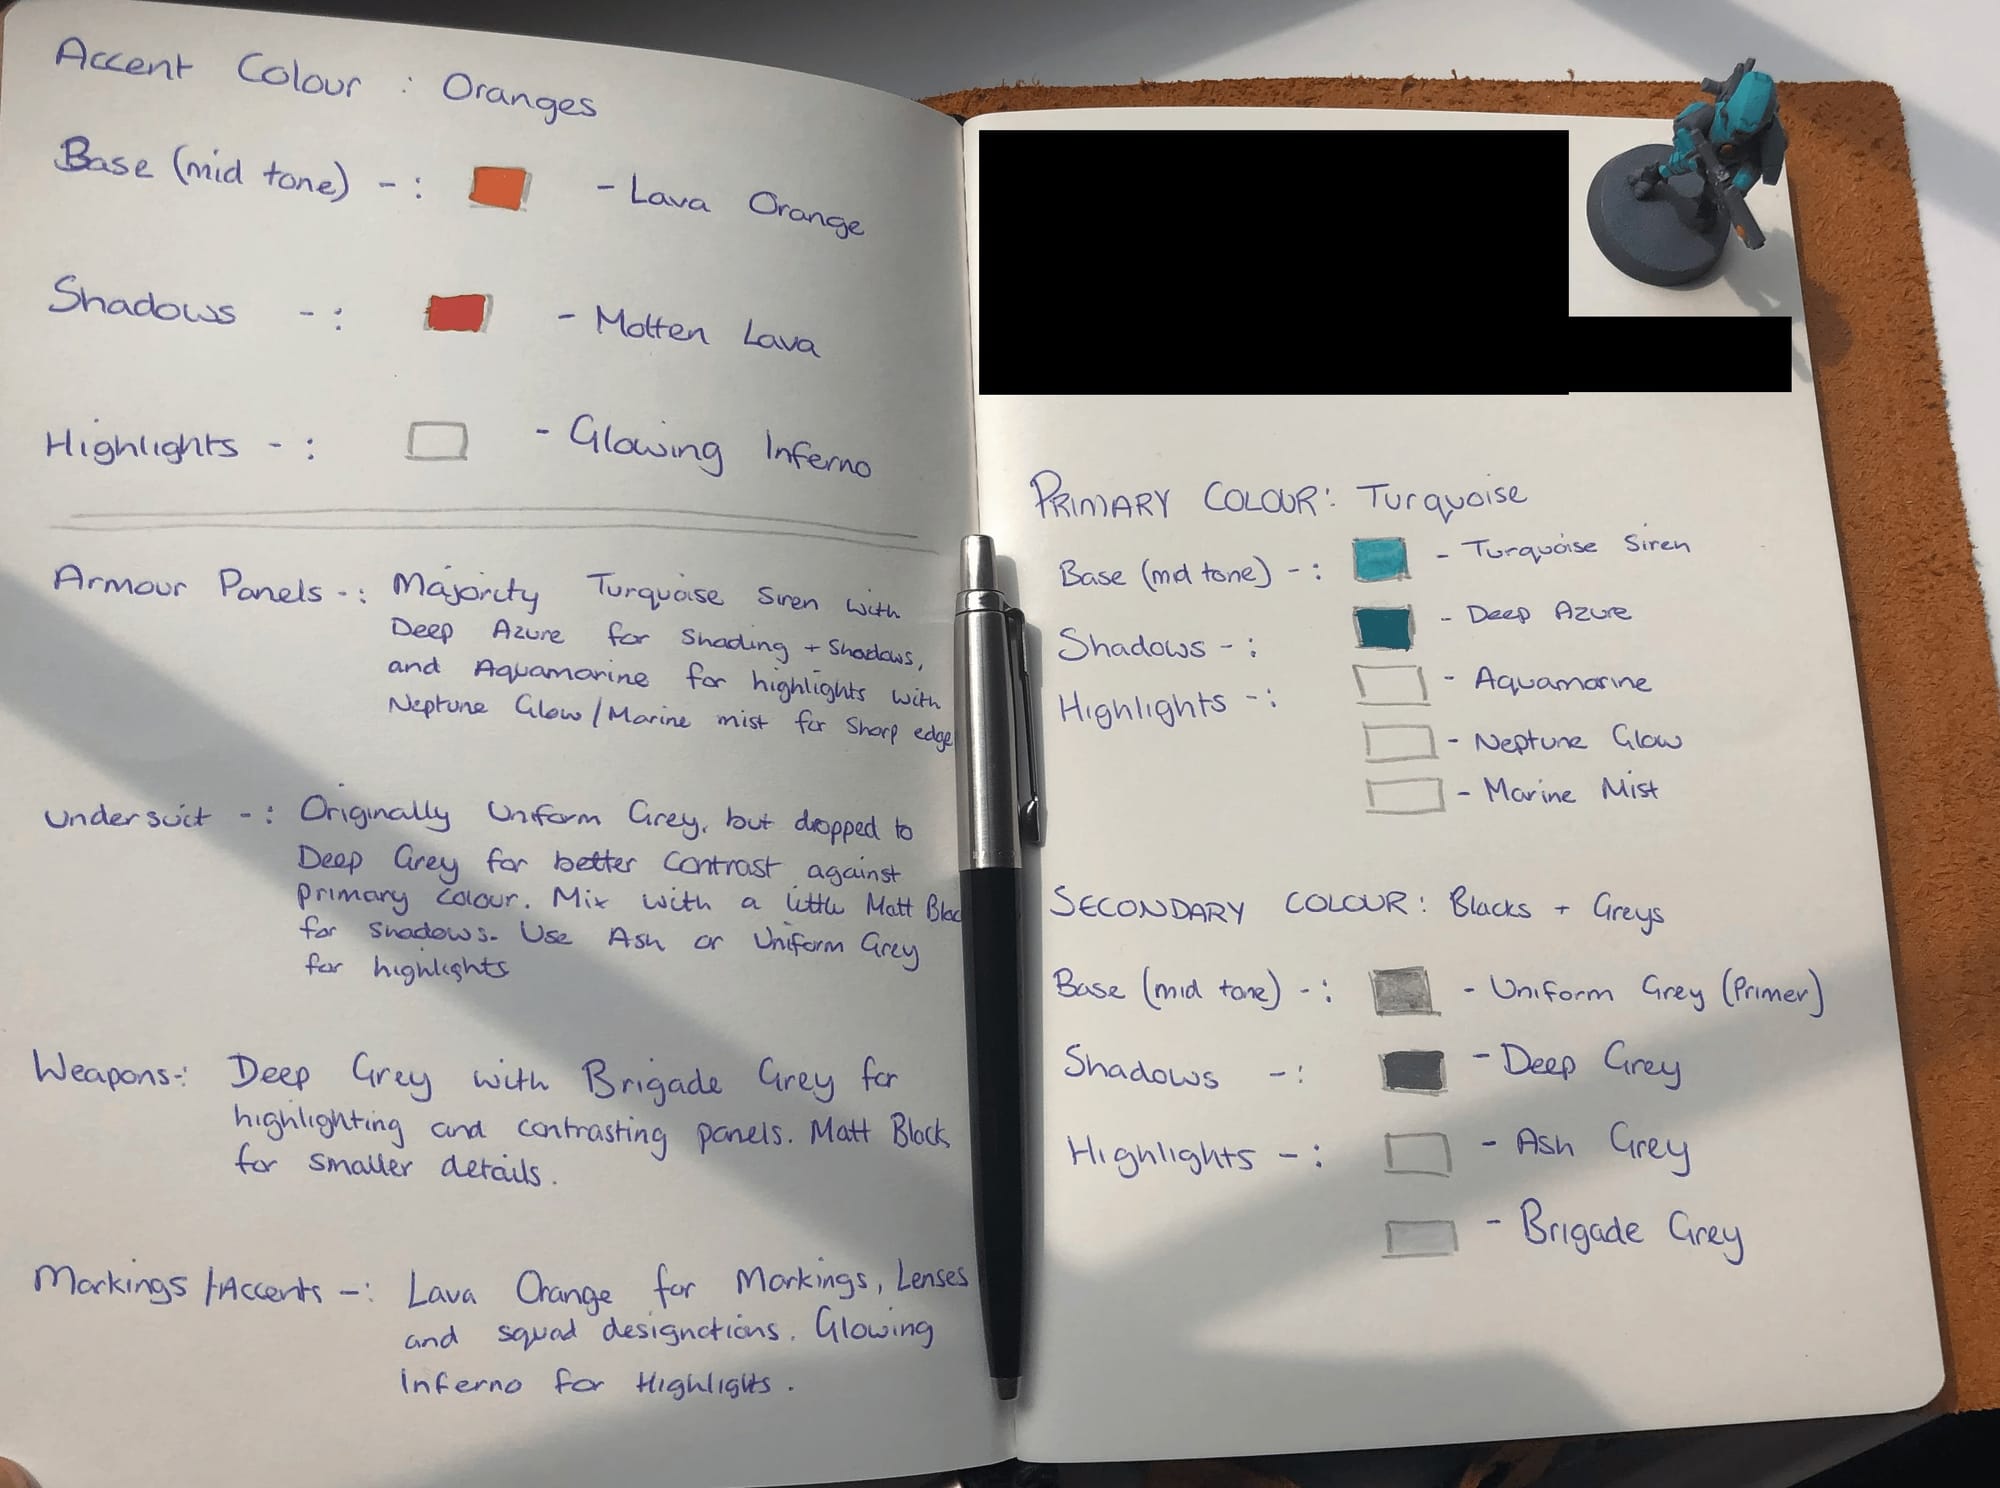 Accent Colour : Oranges
Base (mid tone) -: - Lava Orange
Shadows -: - Molten Lava
Highlights -: - Glowing Inferno
Armour Panels -: Majority Turquoise Siren with
Deep Azure for Shading + Shadows,
and Aquamarine for highlights with
Neptune Glow/Marine mist for Sharp edge
Undersuit -: Originally Uniform Grey, but dropped to
Deep Grey for better contrast against
primary colour. Mix with a little Matt Blac
for shadows. Use Ash or Uniform Grey
for highlights
Weapons-: Deep Grey with Brigade Grey for
highlighting and contrasting panels. Matt Black
for smaller details.
Markings/Accents -: Lava Orange for Markings, Lenses
and squad designations. Glowing
Inferno for Highlights.
PRIMARY COLOUR: Turquoise
Base (mid tone) -: - Turquoise Siren
Shadows -: - Deep Azure
Highlights -: - Aquamarine
- Neptune Glow
- Marine Mist
SECONDARY COLOUR: Blacks + Greys
Base (mid tone) -: - Uniform Grey (Primer)
Shadows -: - Deep Grey
Highlights -: - Ash Grey
- Brigade Grey